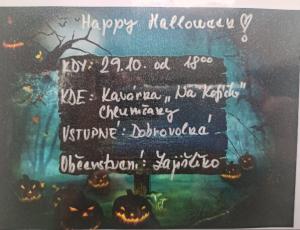 Happy Halloween!
KDY: 29.10. od 18⁰⁰
KDE: Kavárna „Na Kafíčko"
Chlumčany
VSTUPNÉ: Dobrovolné
Občerstvení: Zajištěno